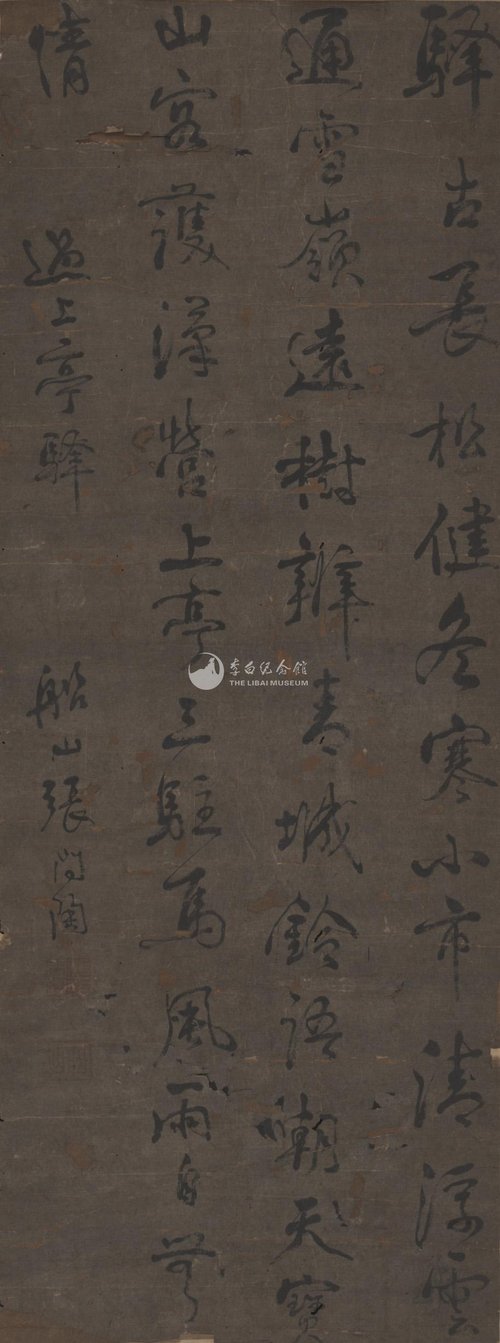 驛古長松健冬寒小市清浮雲
通雪嶺遠樹辨青城鈴語嘲天寶
山容護漢營上亭三駐馬風雨自
情
過上亭驛
船山張問陶
李白纪念館
THE LIBAI MUSEUM